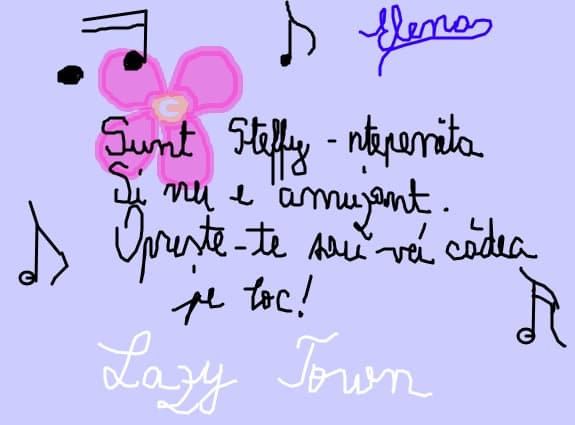 Elena
Sunt Steffy-ntepenita
Si nu e amuzant.
Oprește-te sau vei cădea
pe loc!
Lazy Town